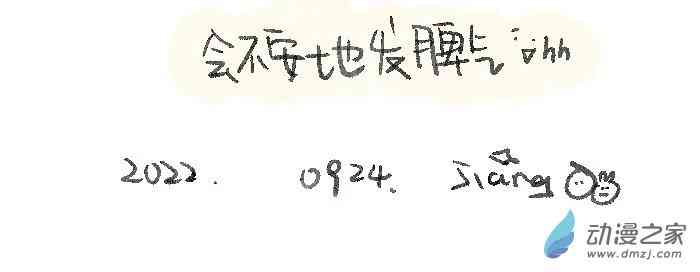 会不安地发脾气 :ohh
2022. 0924. Jiang
动漫之家
www.dmzj.com